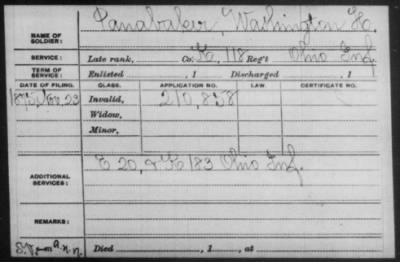 NAME OF SOLDIER: Panabaker, Washington H.
SERVICE: Late rank, Co. K, 118 Reg't Ohio Inf.
TERM OF SERVICE: Enlisted , 1 Discharged , 1
DATE OF FILING. CLASS. APPLICATION NO. LAW. CERTIFICATE NO.
1875, Nov. 23 Invalid, 210,858
Widow,
Minor,
ADDITIONAL SERVICES: C 20, & K 183 Ohio Inf.
REMARKS:
Died , 1 , at